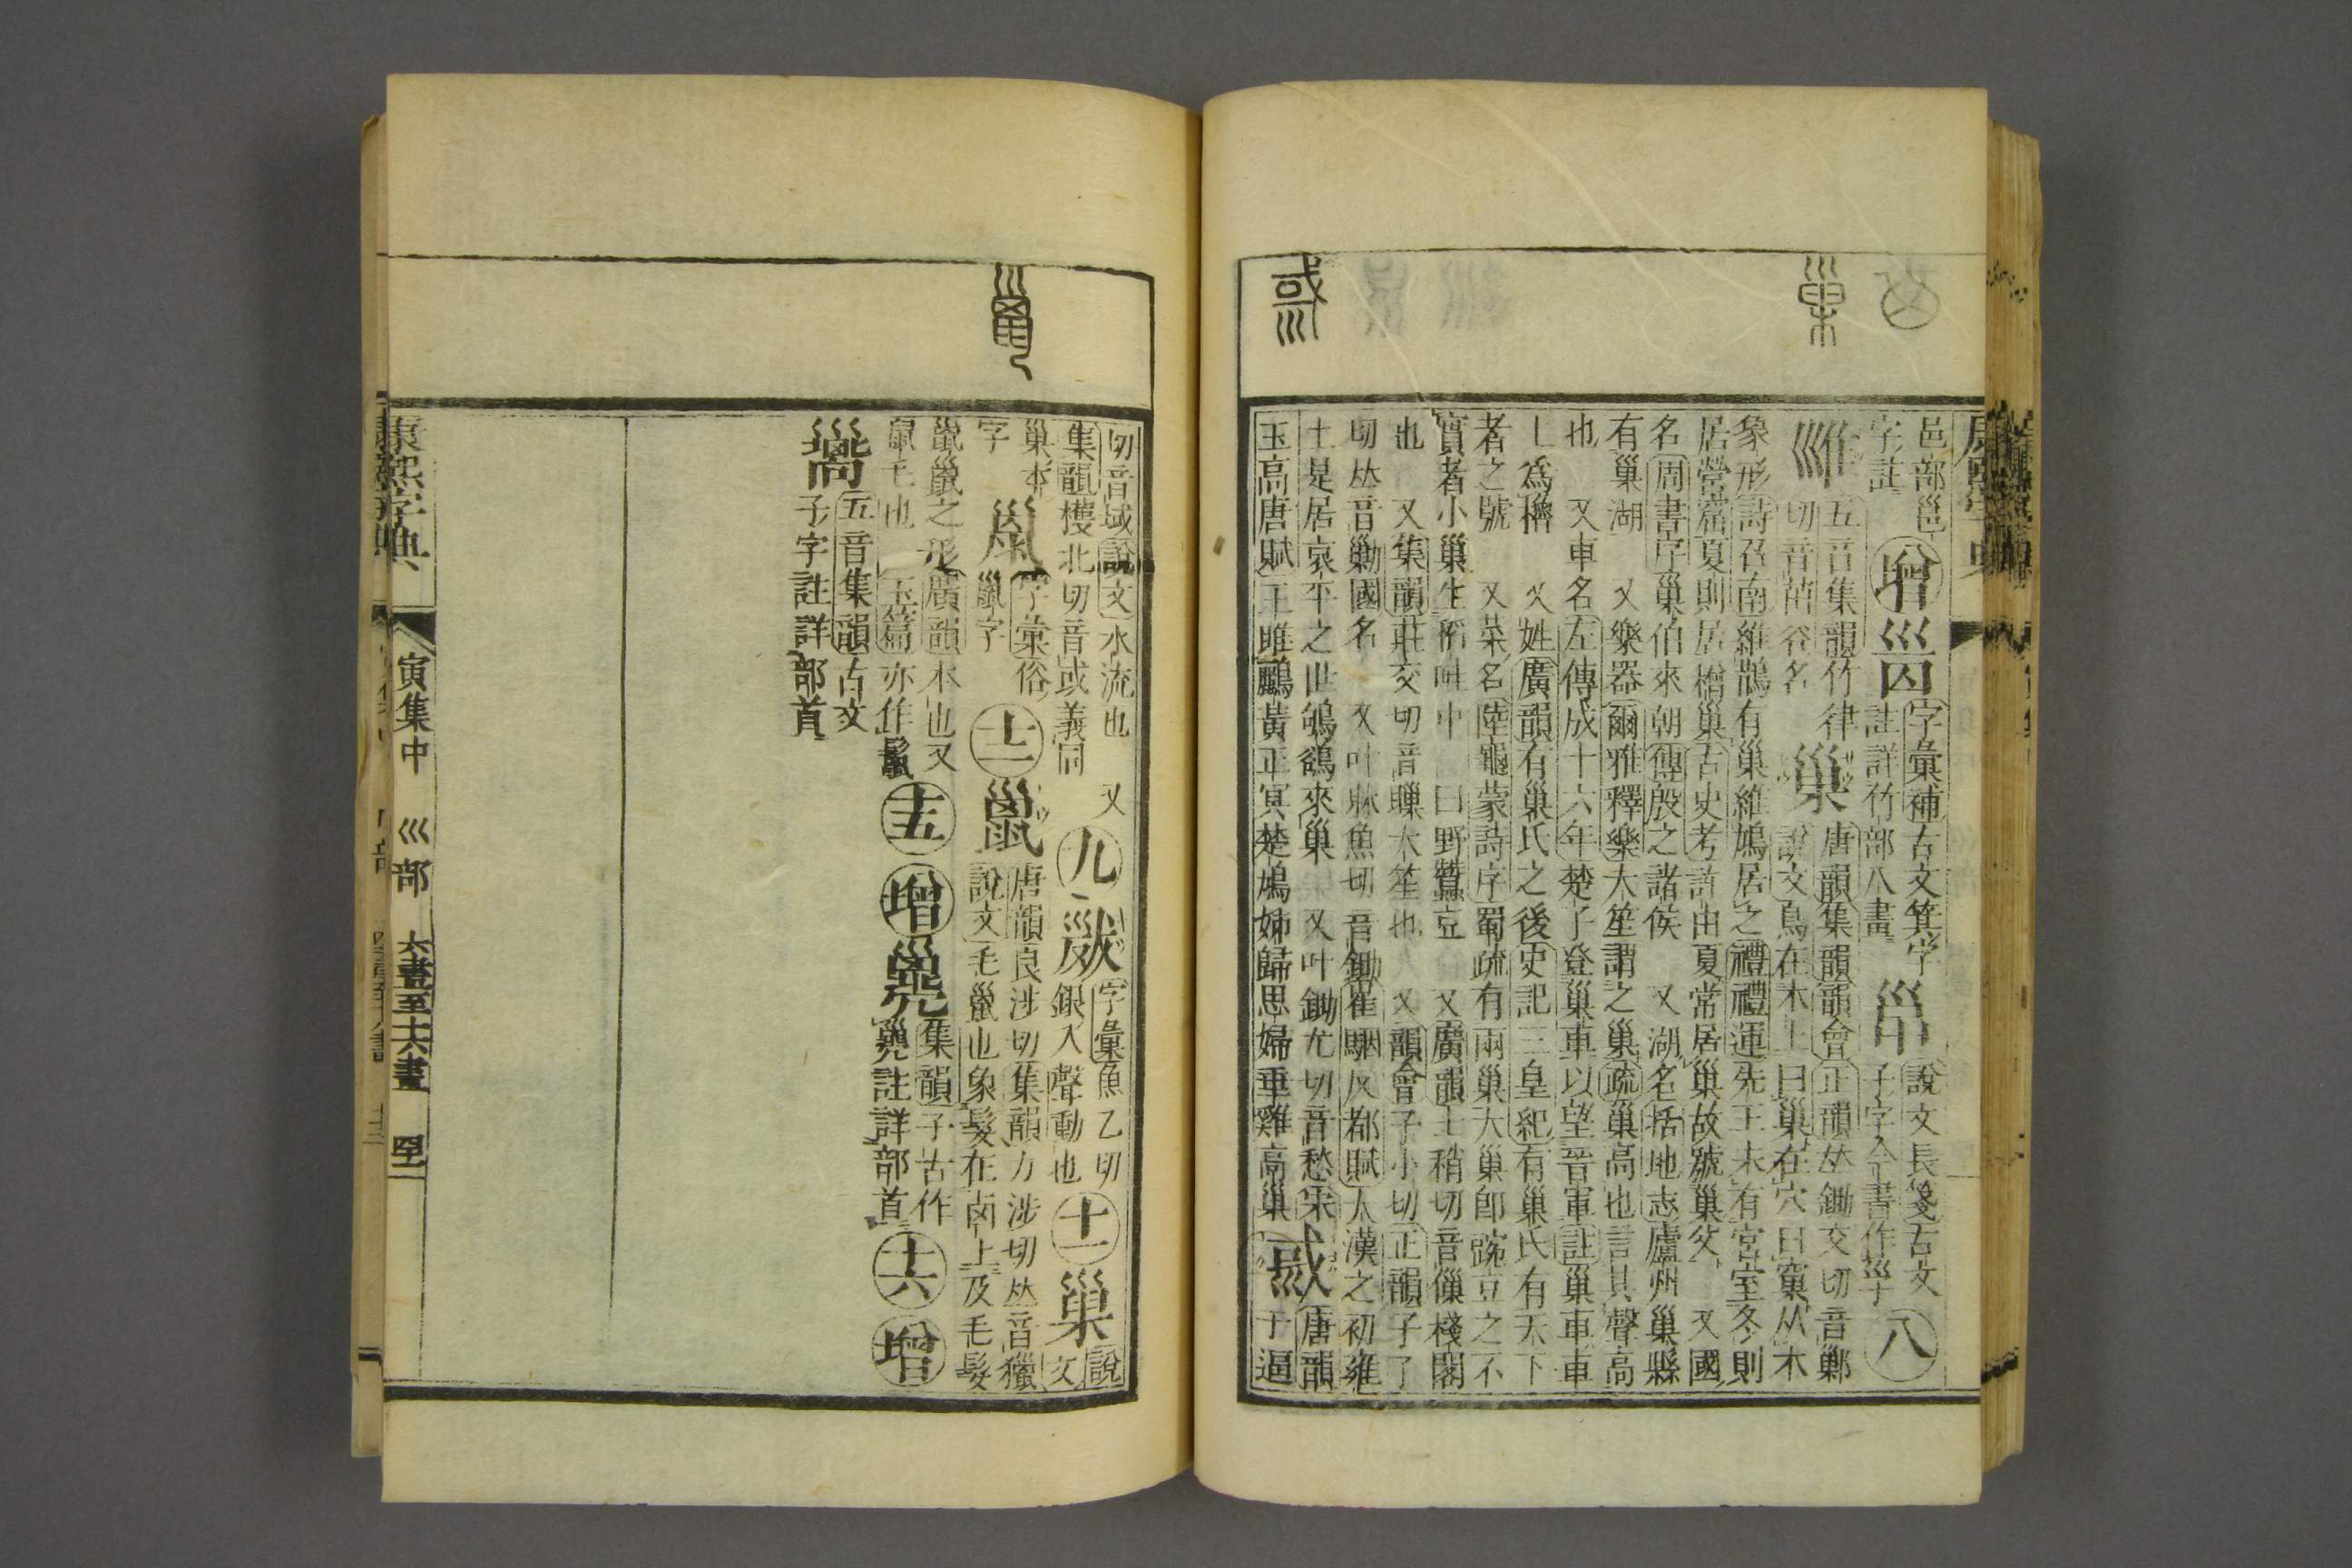 邑部邕
字註
增
𡿭
字彙補古文箕字
註詳竹部八畫
𡿯
說文長箋古文
子字
八
五音集韻竹律
切音茁谷名
巢
唐韻集韻韻會正韻𠀤鋤交切音鄛
說文鳥在木上曰巢在穴曰窠从木
象形詩召南維鵲有巢維鳩居之禮禮運先王未有宮室冬則
居營窟夏則居橧巢古史考許由夏常居巢故號巢父 又國
名周書序巢伯來朝傳殷之諸侯 又湖名括地志廬州巢縣
有巢湖 又樂器爾雅釋樂大笙謂之巢疏巢高也言其聲高
也 又車名左傳成十六年楚子登巢車以望晉軍註巢車車
上爲櫓 又姓廣韻有巢氏之後史記三皇紀有巢氏有天下
者之號 又菜名陸龜蒙詩序蜀疏有兩巢大巢卽豌豆之不
實者小巢生稻畦中曰野蠶豆 又廣韻士稍切音巢棧閣
也 又集韻莊交切音䎐大笙也 又韻會子小切正韻子了
切𠀤音勦國名 又叶牀魚切音鋤崔駰反都賦大漢之初雍
土是居哀平之世鴝鵒來巢 又叶鋤尤切音愁宋
玉高唐賦王雎鸝黃正冥楚鳩姊歸思婦垂雞高巢
𢧌
唐韻
于逼
切音域說文水流也 又
集韻檴北切音或義同
九
字彙魚乙切
銀入聲動也
十一
巢
說
文
巢本
字
字彙俗
巤字
十二
巤
唐韻良涉切集韻力涉切𠀤音獵
說文毛巤也象髮在囟上及毛髮
巤巤之形廣韻本也又
鼠毛也 玉篇亦作鬣
十五
增
集韻子古作
註詳部首
十六
增
五音集韻古文
子字註詳部首
康熙字典
寅集中 巛部 六畫至十六畫 四十一